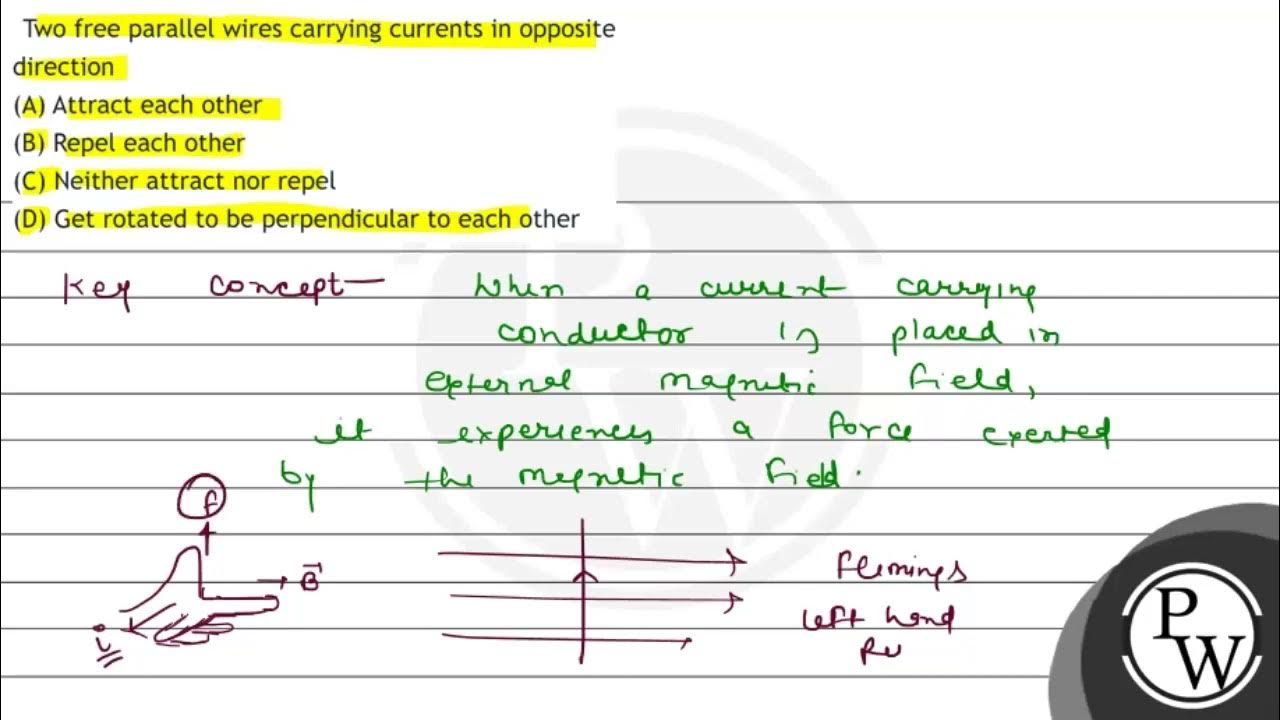 Two free parallel wires carrying currents in opposite
direction
(A) Attract each other
(B) Repel each other
(C) Neither attract nor repel
(D) Get rotated to be perpendicular to each other
Key concept— When a current carrying
conductor is placed in
external magnetic field,
it experiences a force exerted
by the magnetic field.
F
B
i
Flemings
left hand
Ru
PW
PW